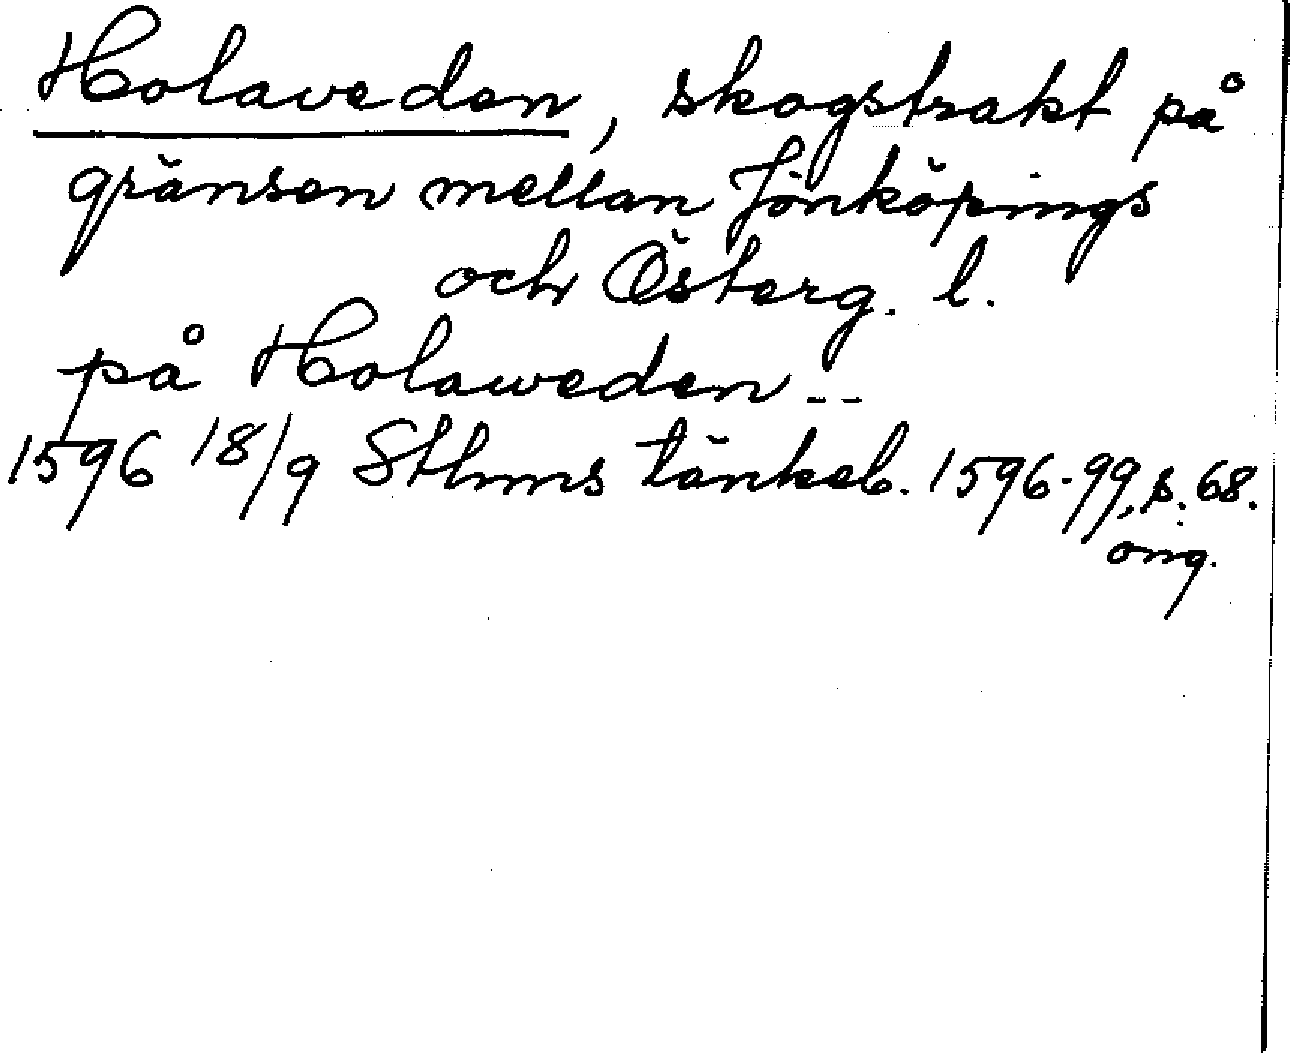 Holaveden, skogstrakt på
gränsen mellan Jönköpings
och Österg. l.
på Holaweden --
1596 18/9 Sthms tänkeb. 1596-99, s. 68.
orig.